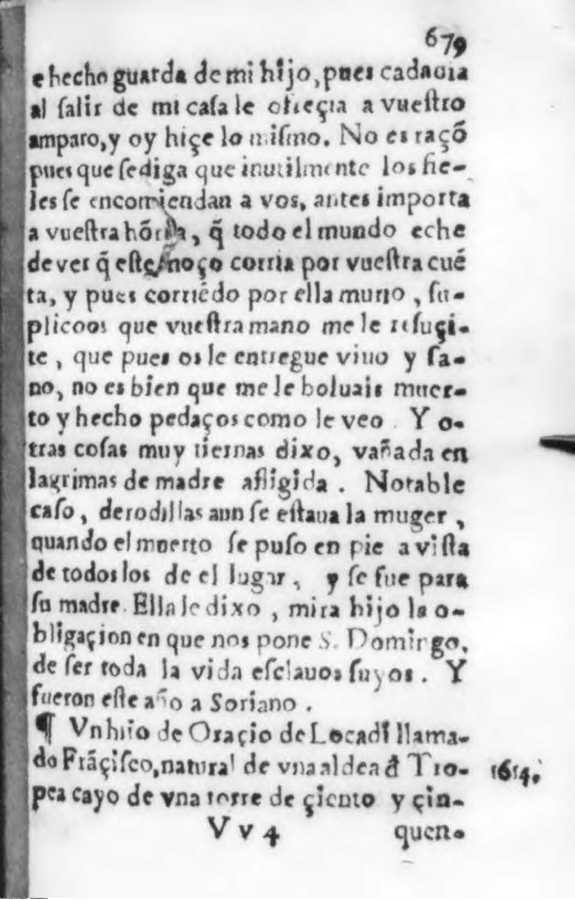 679
e hecho guarda de mi hijo, pues cadauia
al ſalir de mi caſa le ofreçia a vueſtro
amparo, y oy hiçe lo miſmo. No es raçõ
pues que ſediga que inutilmente los fie-
les ſe encomiendan a vos, antes importa
a vueſtra hõrra, q̃ todo el mundo eche
de ver q̃ eſte moço corria por vueſtra cué
ta, y pues corriédo por ella murio, ſu-
plicoos que vueſtra mano me le reſuçi-
te, que pues os le entregue viuo y ſa-
no, no es bien que me le boluais muer-
to y hecho pedaços como le veo. Y o-
tras coſas muy tiernas dixo, vañada en
lagrimas de madre afligida. Notable
caſo, derodillas aun ſe eſtaua la muger,
quando el muerto ſe puſo en pie a viſta
de todos los de el lugar, y ſe fue para
ſu madre. Ella le dixo, mira hijo la o-
bligaçion en que nos pone S. Domingo,
de ſer toda la vida eſclauos ſuyos. Y
fueron eſte año a Soriano.
¶ Vn hijo de Oraçio de Locadi llama-
do Frãçiſco, natural de vna aldea đ Tro- 1614.
pea cayo de vna torre de çiento y çin-
V v 4 quen-